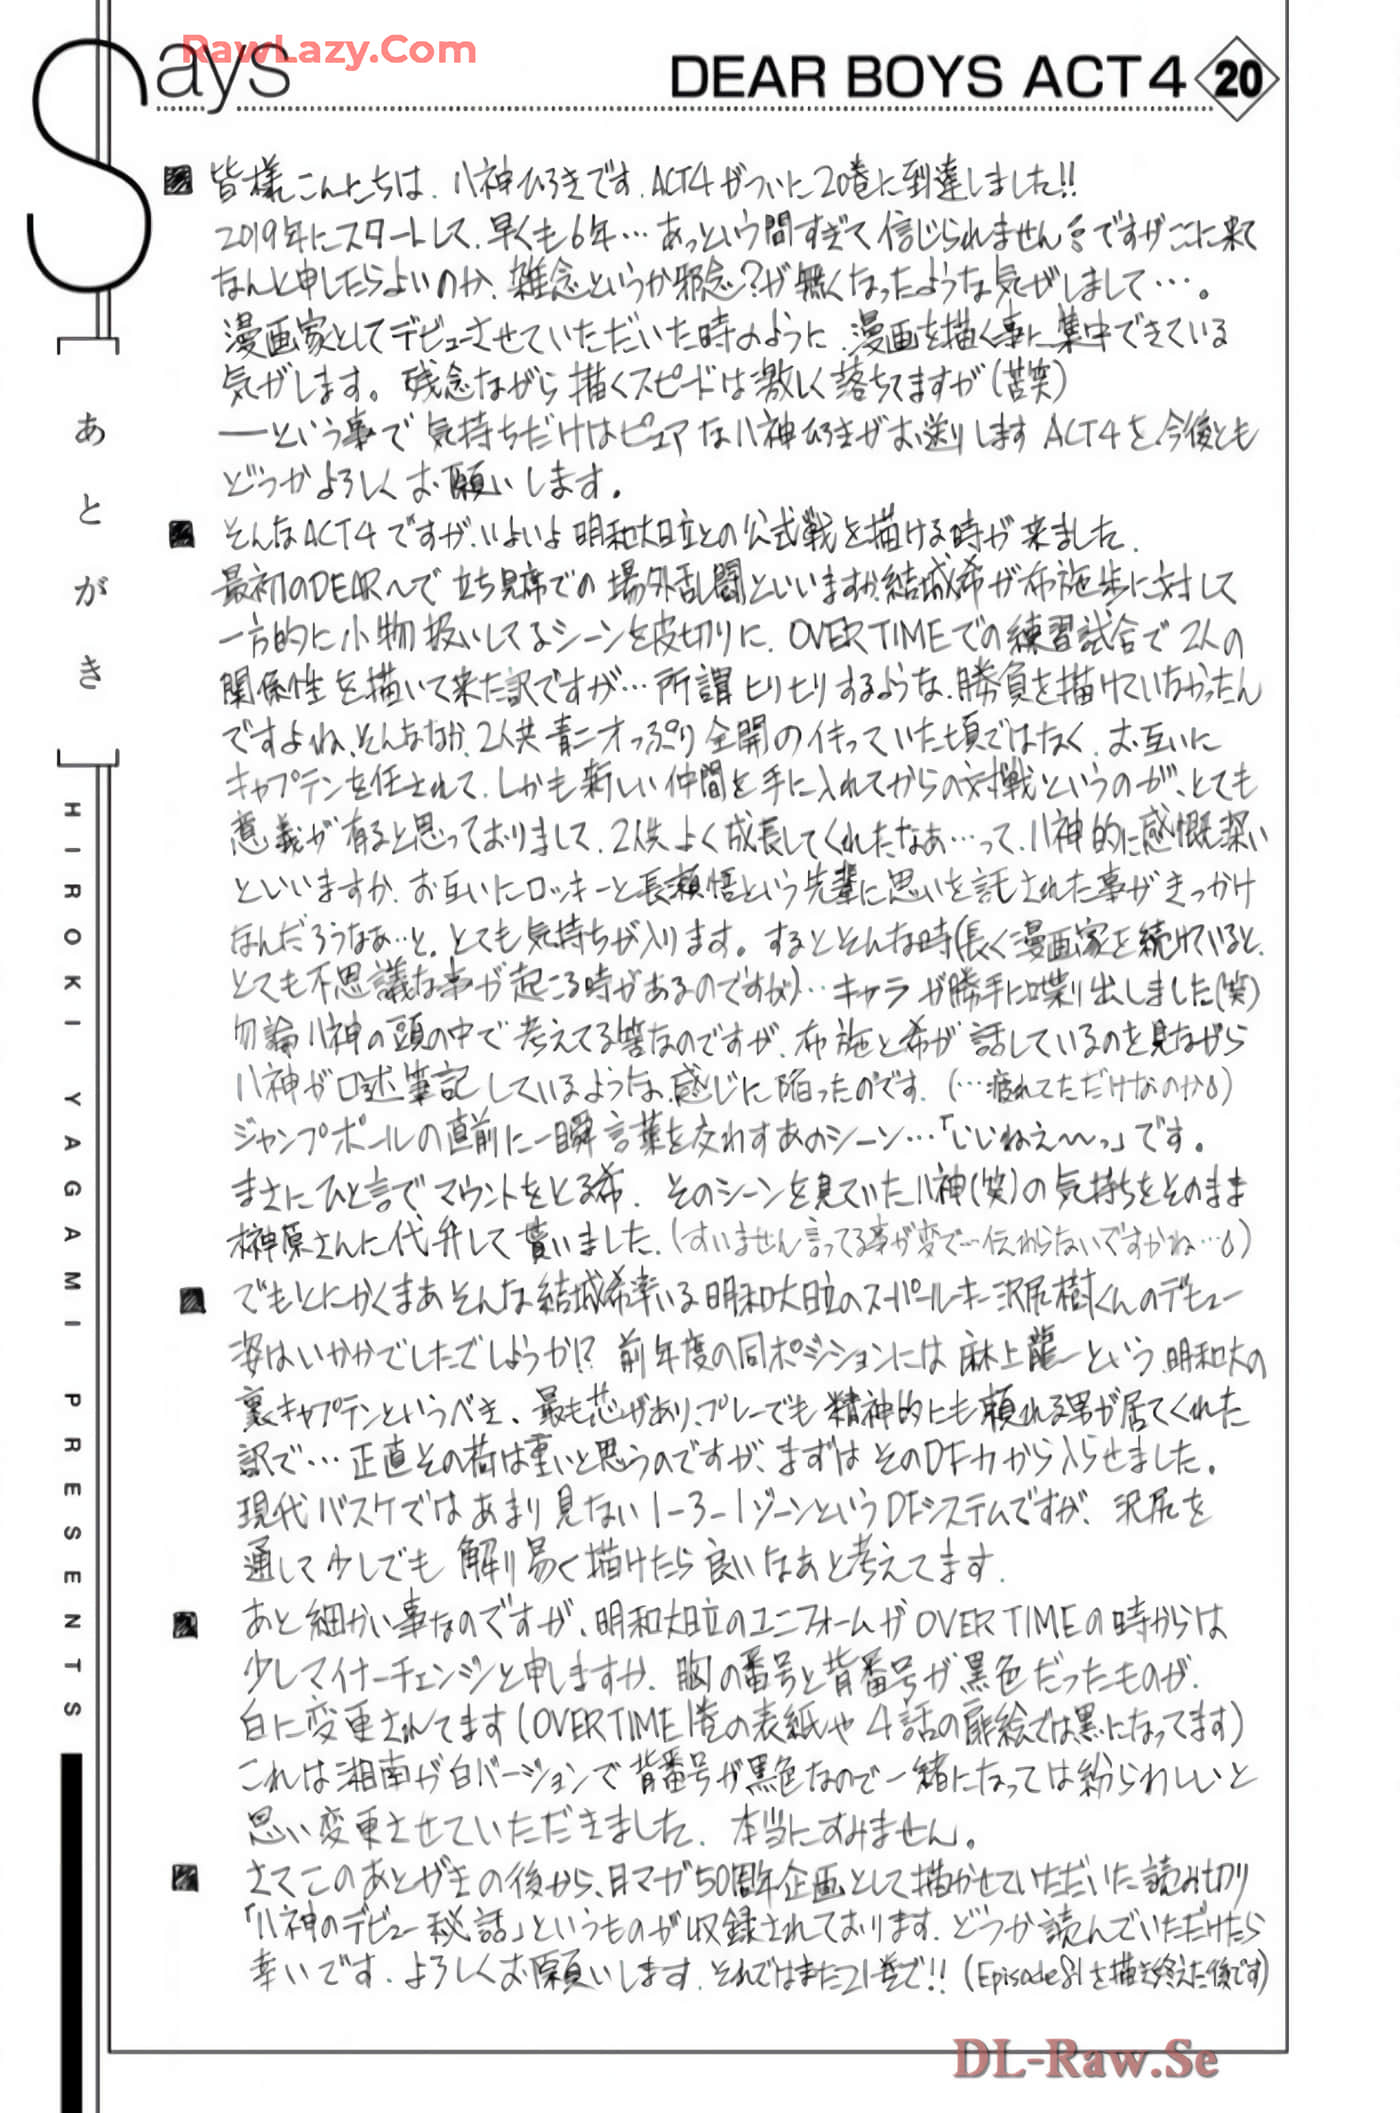 RawLazy.Com
Says
DEAR BOYS ACT4 20
[あとがき]
HIROKI YAGAMI PRESENTS
■皆様こんにちは、八神ひろきです。ACT4がついに20巻に到達しました!!
2019年にスタートして、早くも6年…あっという間すぎて信じられません。ですがここに来て
なんと申したらよいのか、雑念というか邪念?が無くなったような気がしまして…。
漫画家としてデビューさせていただいた時のように、漫画を描く事に集中できている
気がします。残念ながら描くスピードは激しく落ちてますが(苦笑)
──という事で気持ちだけはピュアな八神ひろきがお送りしますACT4を今後とも
どうかよろしくお願いします。
■そんなACT4ですが、いよいよ明和大日立との公式戦を描ける時が来ました。
最初のDEARへで立ち見席での場外乱闘といいますか、結城希が布施歩に対して
一方的に小物扱いしてるシーンを皮切りに、OVER TIMEでの練習試合で2人の
関係性を描いて来た訳ですが…所謂ヒリヒリするような、勝負を描けていなかったん
ですよね、そんななか、2人共青二才っぷり全開のイキっていた頃ではなく、お互いに
キャプテンを任されて、しかも新しい仲間を手に入れてからの対戦というのが、とても
意義が有ると思っておりまして、2人共よく成長してくれたなぁ…って、八神的に感慨深い
といいますか、お互いにロッキーと長瀬悟という先輩に思いを託された事がきっかけ
なんだろうなぁ…と、とても気持ちが入ります。するとそんな時(長く漫画家を続けていると、
とても不思議な事が起こる時があるのですが)…キャラが勝手に喋り出しました(笑)
勿論八神の頭の中で考えてる筈なのですが、布施と希が話しているのを見ながら
八神が口述筆記しているような感じに陥ったのです。(…疲れてただけなのか)
ジャンプボールの直前に一瞬言葉を交わすあのシーン…「いいねえ〜〜っ」です。
まさにひと言でマウントをとる希、そのシーンを見ていた八神(笑)の気持ちをそのまま
榊原さんに代弁して貰いました。(すいません言ってる事が変で…伝わらないですかね…)
■でもとにかくまあそんな結城希率いる明和大日立のスーパールーキー沢尻樹くんのデビュー
姿はいかがでしたでしょうか!?前年度の同ポジションには麻上龍一という、明和大の
裏キャプテンというべき、最も芯があり、プレーでも精神的にも頼れる男が居てくれた
訳で…正直その荷は重いと思うのですが、まずはそのDF力から入らせました。
現代バスケではあまり見ない1-3-1ゾーンというDFシステムですが、沢尻を
通して少しでも解り易く描けたら良いなあと考えてます。
■あと細かい事なのですが、明和大日立のユニフォームがOVER TIMEの時からは
少しマイナーチェンジと申しますか、胸の番号と背番号が黒色だったものが、
白に変更されてます(OVER TIME1巻の表紙や4話の扉絵では黒になってます)
これは湘南が白バージョンで背番号が黒色なので一緒になっては紛らわしいと
思い変更させていただきました。本当にすみません。
■さてこのあとがきの後から、月マガ50周年企画として描かせていただいた読み切り
「八神のデビュー秘話」というものが収録されております。どうか読んでいただけたら
幸いです。よろしくお願いします。それではまた21巻で!!(Episode81を描き終えた後です)
DL-Raw.Se